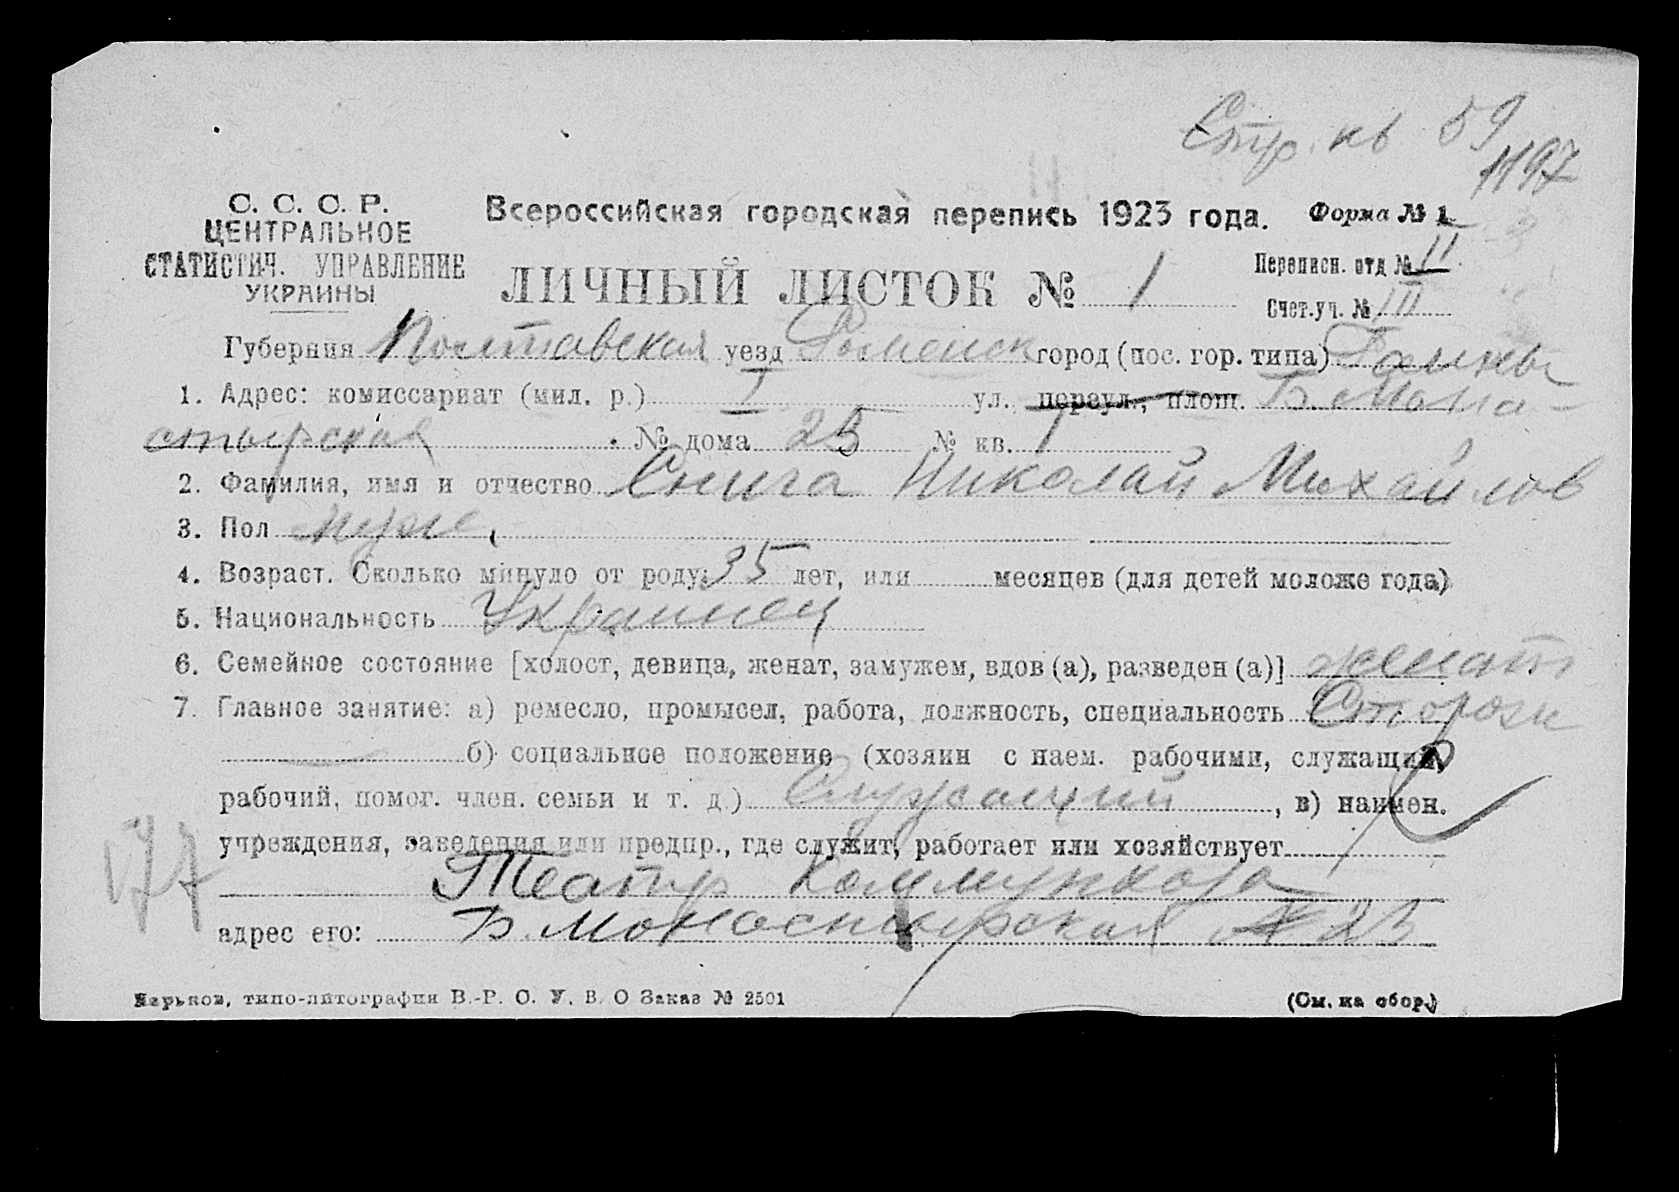 Стр. кв 59
1197
С. С. С. Р.
ЦЕНТРАЛЬНОЕ
СТАТИСТИЧ. УПРАВЛЕНИЕ
УКРАИНЫ
Всероссийская городская перепись 1923 года.
Форма № 1
ЛИЧНЫЙ ЛИСТОК № 1
Переписн. отд № II
Счет.уч. № III
Губерния Полтавская уезд Роменск город (пос. гор. типа) Ромны
1. Адрес: комиссариат (мил. р.) I ул. переул., площ. Б. Мона-
стырская № дома 23 № кв. 1
2. Фамилия, имя и отчество Снига Николай Михайлов
3. Пол муж.
4. Возраст. Сколько минуло от роду: 35 лет, или месяцев (для детей моложе года)
5. Национальность Украинец
6. Семейное состояние [холост, девица, женат, замужем, вдов (а), разведен (а)] женат
7. Главное занятие: а) ремесло, промысел, работа, должность, специальность Сторож
б) социальное положение (хозяин с наем. рабочими, служащий,
рабочий, помог. член. семьи и т. д.) Служащий, в) наимен.
учреждения, заведения или предпр., где служит, работает или хозяйствует
Театр Коммунхоза
адрес его: Б. Монастырская № 23
177
Харьков, типо-литография В.-Р. О. У. В. О Заказ № 2501
(См. на обор.)